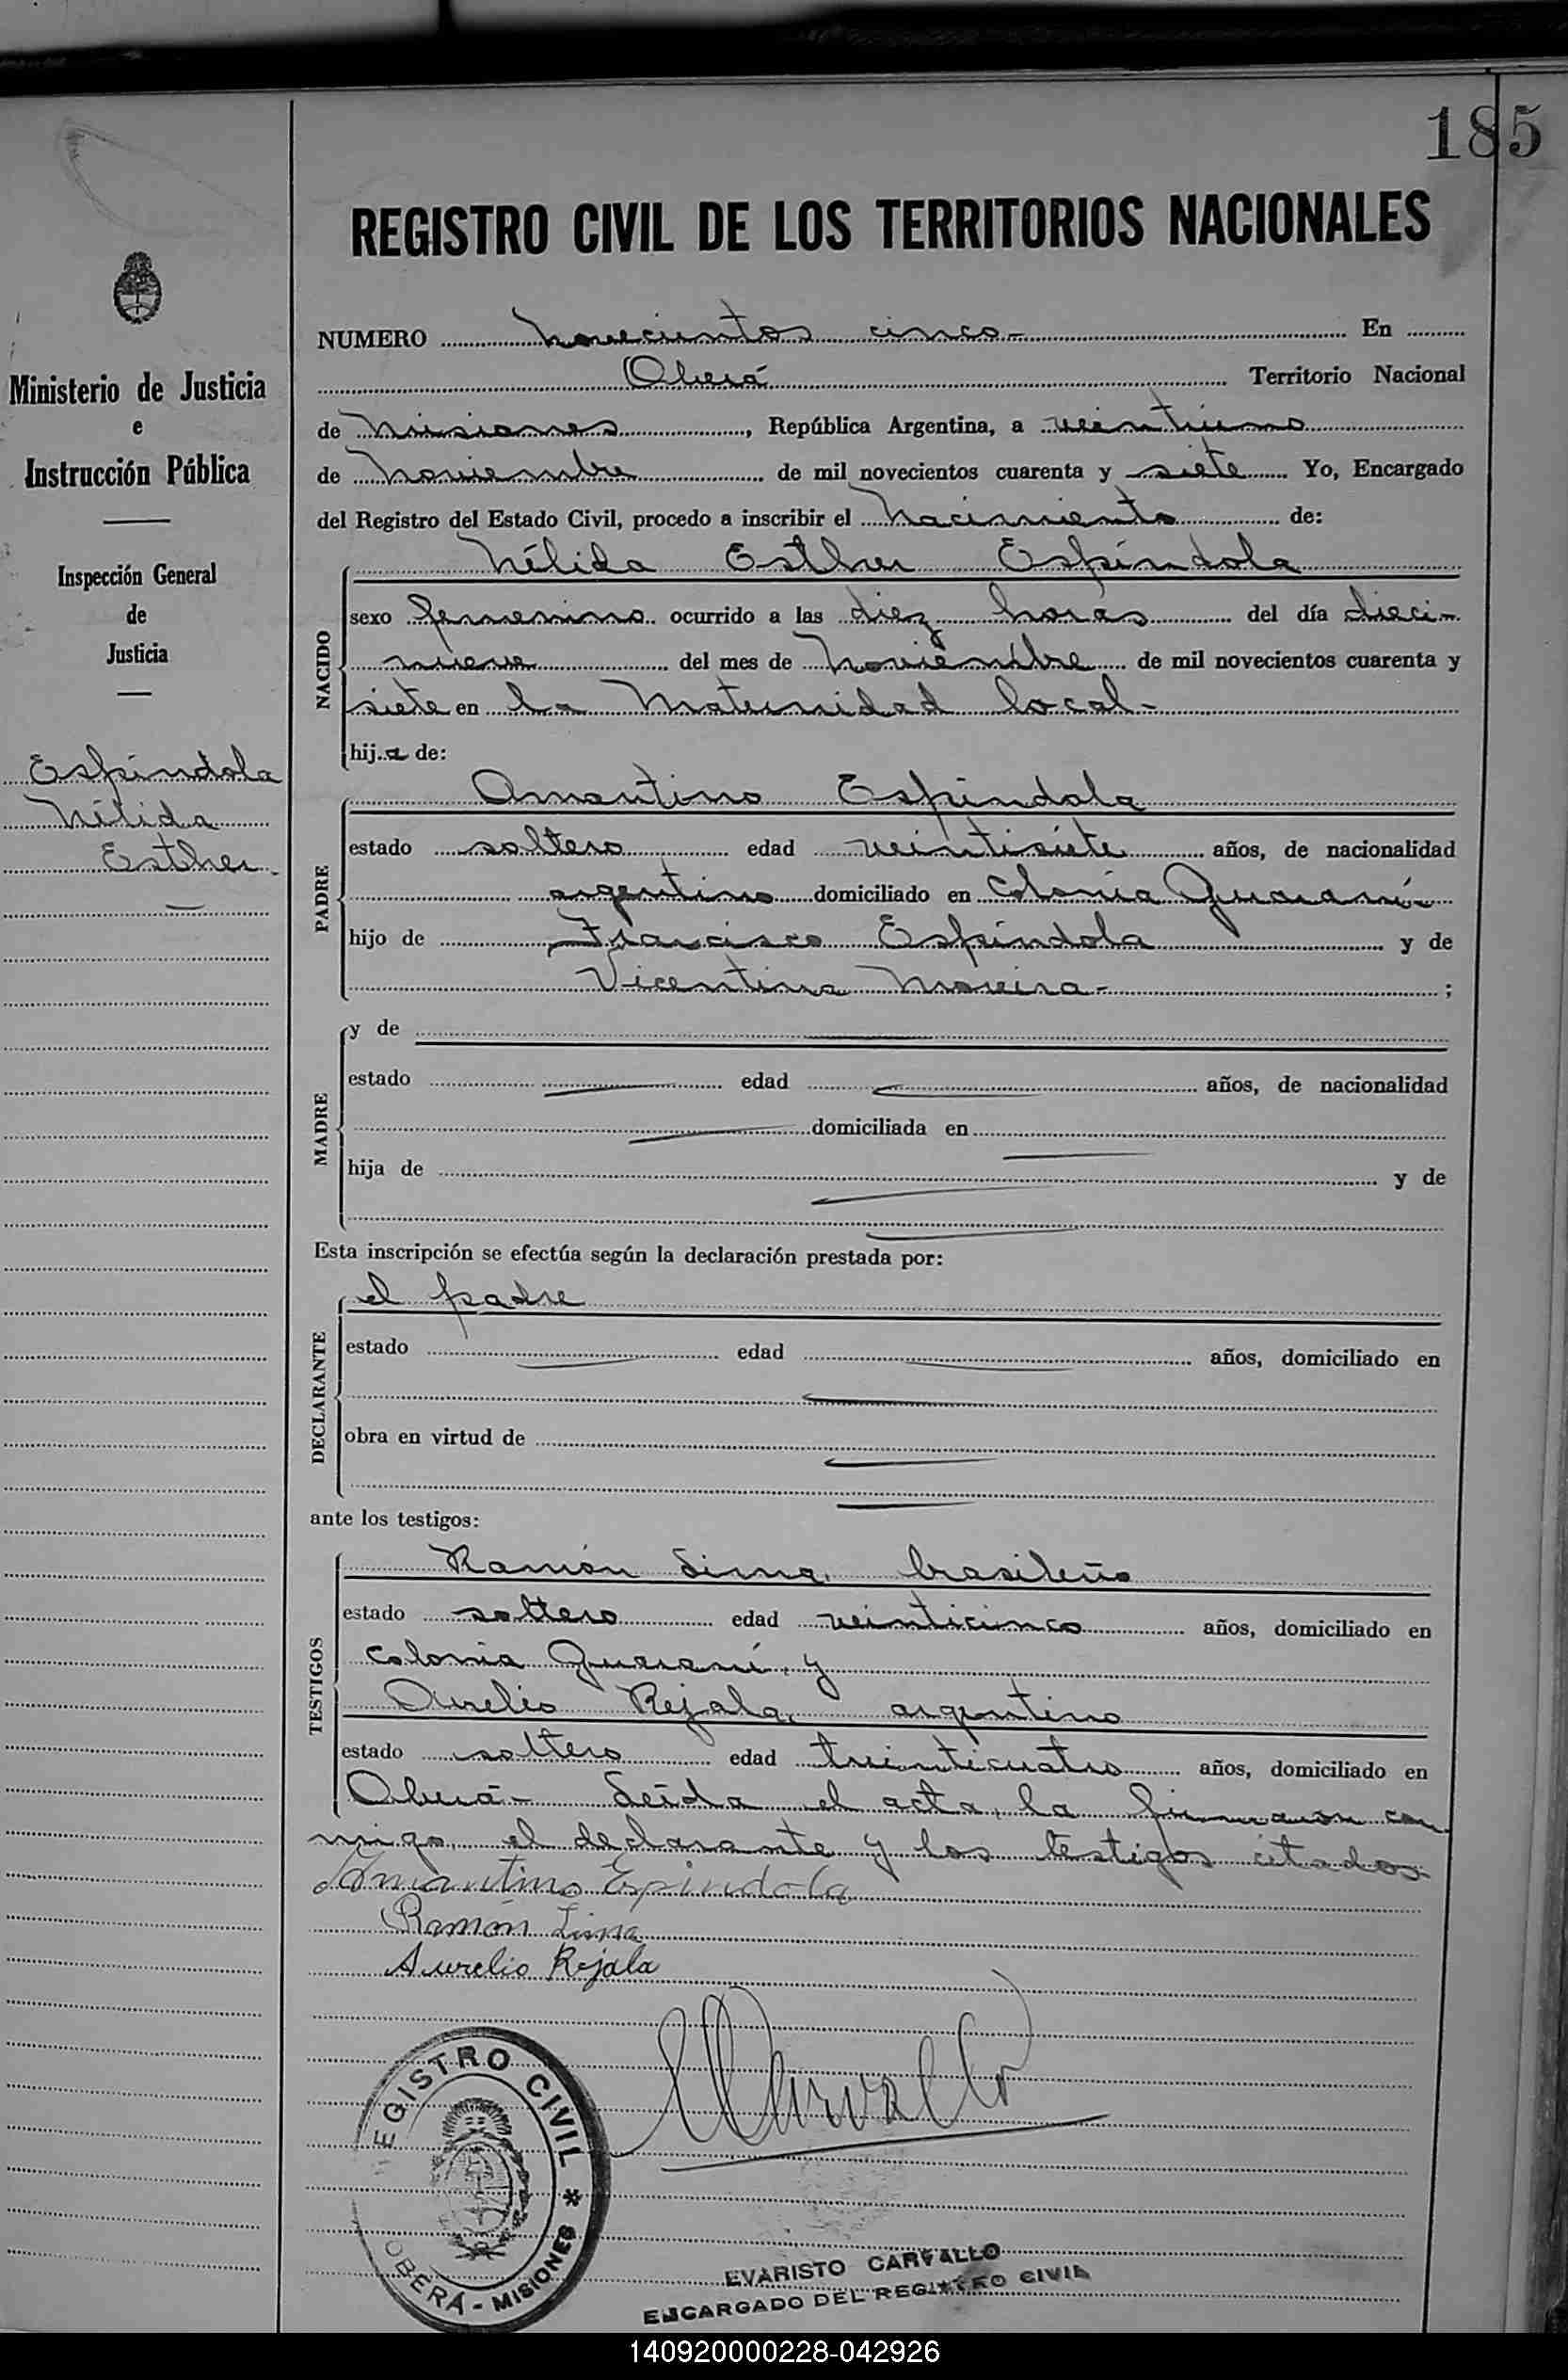 185
REGISTRO CIVIL DE LOS TERRITORIOS NACIONALES
Ministerio de Justicia
e
Instrucción Pública
Inspección General
de
Justicia
Espíndola
Nélida
Esther
NUMERO novecientos cinco- En
Oberá Territorio Nacional
de Misiones, República Argentina, a veintiuno
de Noviembre de mil novecientos cuarenta y siete Yo, Encargado
del Registro del Estado Civil, procedo a inscribir el Nacimiento de:
NACIDO
Nélida Esther Espíndola
sexo femenino ocurrido a las diez horas del día dieci-
nueve del mes de Noviembre de mil novecientos cuarenta y
siete en la Maternidad local-
hija de:
PADRE
Amantino Espíndola
estado soltero edad veintisiete años, de nacionalidad
argentino domiciliado en Colonia Guaraní-
hijo de Francisco Espíndola y de
Vicentina Moreira- ;
MADRE
y de
estado edad años, de nacionalidad
domiciliada en
hija de y de
Esta inscripción se efectúa según la declaración prestada por:
DECLARANTE
el padre
estado edad años, domiciliado en
obra en virtud de
ante los testigos:
TESTIGOS
Ramón Lima, brasileño
estado soltero edad veinticinco años, domiciliado en
Colonia Guaraní, y
Aurelio Rejala, argentino
estado soltero edad treinticuatro años, domiciliado en
Oberá- Leída el acta, la firmaron con
migo, el declarante y los testigos citados-
Amantino Espindola
Ramón Lima
Aurelio Rejala
ECarvallo
REGISTRO CIVIL *
OBERÁ - MISIONES
EVARISTO CARVALLO
ENCARGADO DEL REGISTRO CIVIL
140920000228-042926